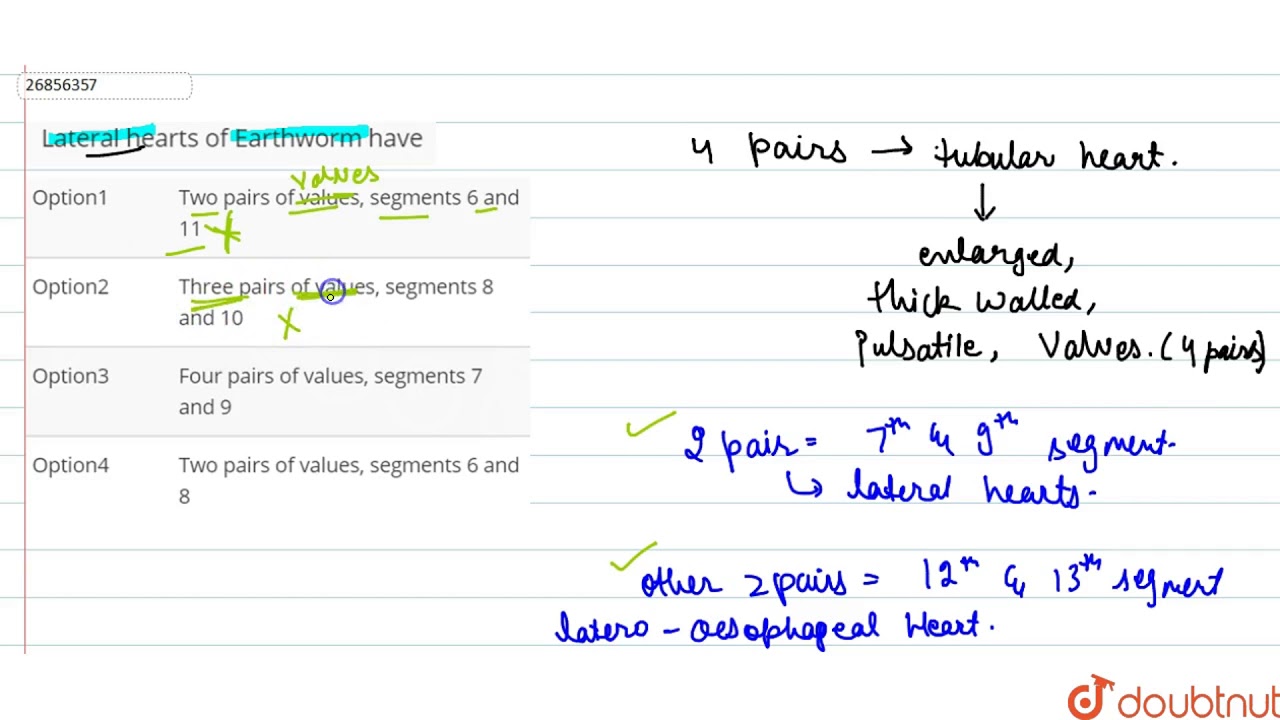 26856357
Lateral hearts of Earthworm have
valves
Option1 Two pairs of values, segments 6 and
11
Option2 Three pairs of values, segments 8
and 10
Option3 Four pairs of values, segments 7
and 9
Option4 Two pairs of values, segments 6 and
8
4 pairs → tubular heart.
↓
enlarged,
thick walled,
Pulsatile, Valves. (4 pairs)
2 pair = 7th & 9th segment.
↳ lateral hearts.
other 2 pairs = 12th & 13th segment
latero - oesophageal Heart.
doubtnut